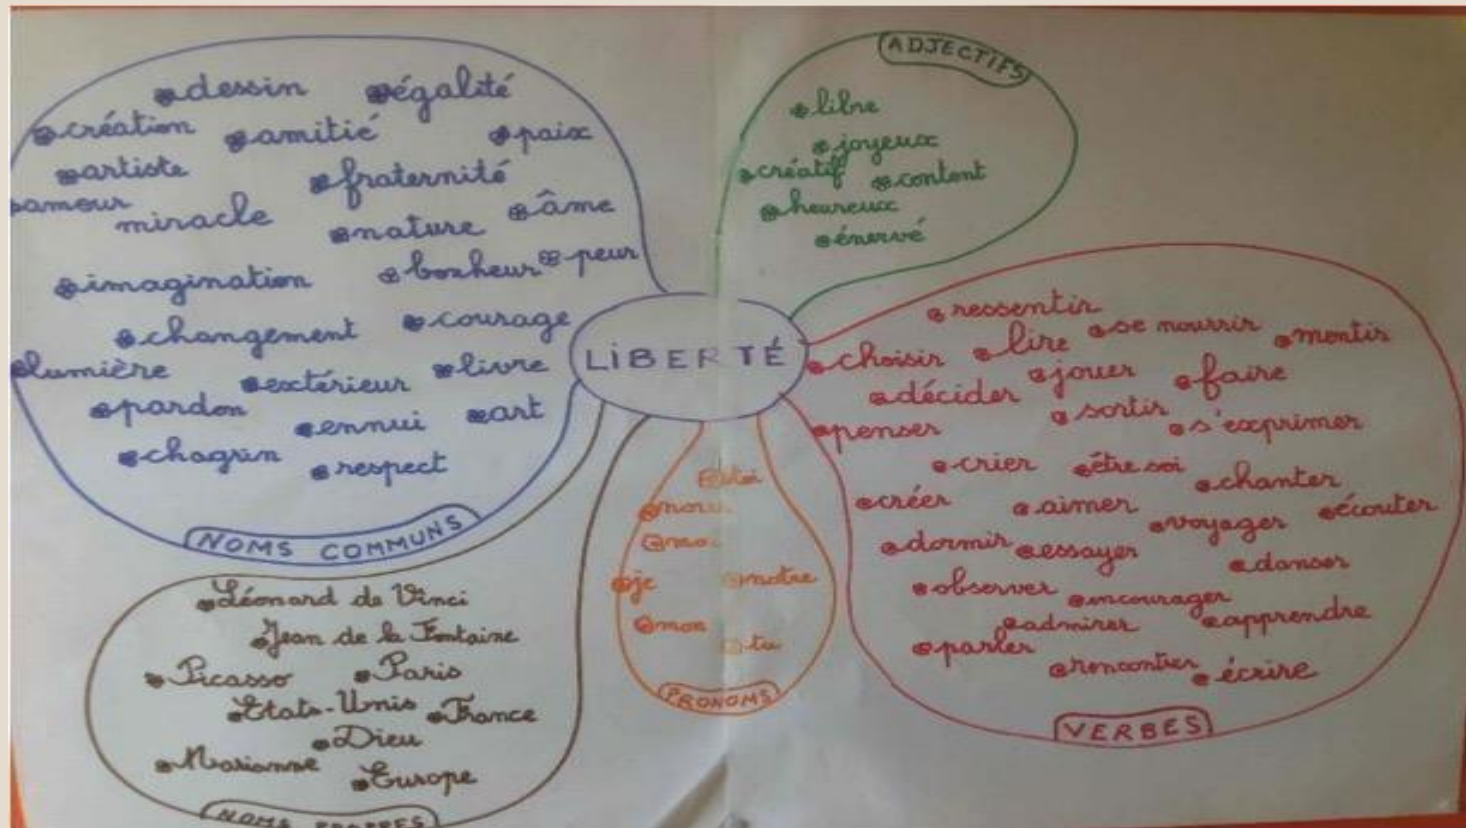 LIBERTÉ
NOMS COMMUNS
dessin égalité
création amitié paix
artiste fraternité
amour miracle nature âme
imagination bonheur peur
changement courage
lumière extérieur livre
pardon ennui art
chagrin respect
ADJECTIFS
libre
joyeux
créatif content
heureux
énervé
VERBES
ressentir
choisir lire se nourrir mentir
décider jouer faire
penser sortir s'exprimer
crier être soi chanter
créer aimer voyager écouter
dormir essayer danser
observer encourager
admirer apprendre
parler rencontrer écrire
PRONOMS
je notre
mon
tu
NOMS PROPRES
Léonard de Vinci
Jean de la Fontaine
Picasso Paris
Etats-Unis France
Dieu
Marianne Europe